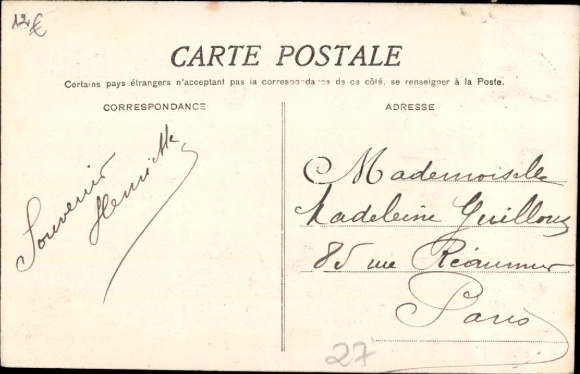 12€
CARTE POSTALE
Certains pays étrangers n'acceptant pas la correspondance de ce côté, se renseigner à la Poste.
CORRESPONDANCE
Souvenir
Henriette
ADRESSE
Mademoiselle
Madeleine Guilloux
85 rue Réaumur
Paris
27